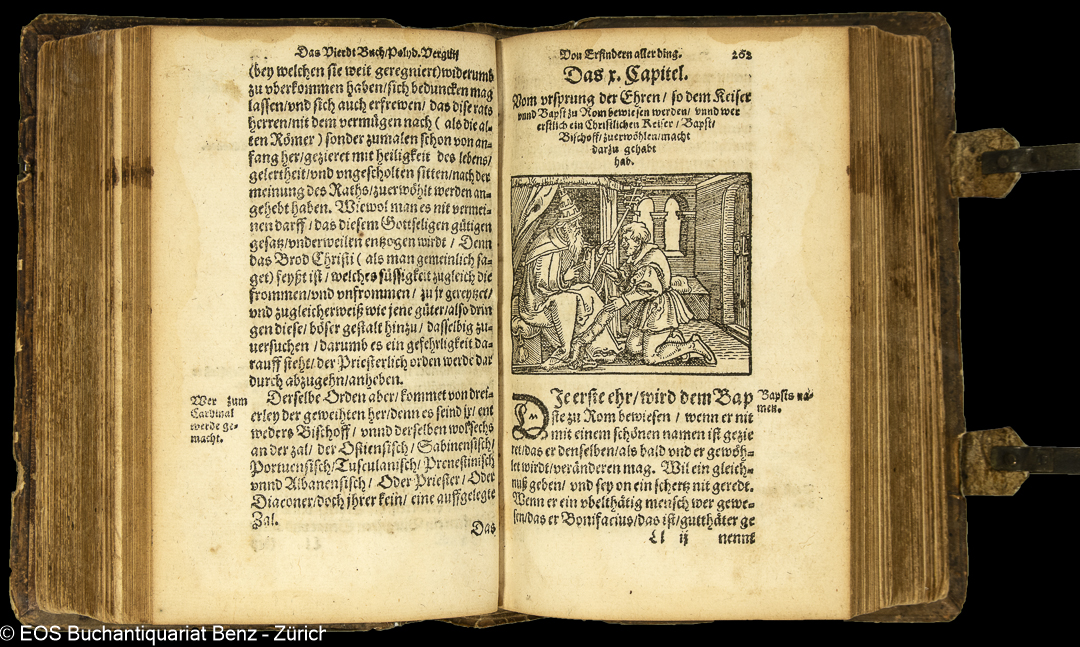 Das Vierdt Buch/Polyd. Vergilij
(bey welchen sie weit geregniert)widerumb
zu vberkommen haben/sich beduncken mag
lassen/vnd sich auch erfrewen/ das dise rats
herren/nit dem vermügen nach ( als die al-
ten Römer ) sonder zumalen schon von an-
fang her/gezieret mit heiligkeit des lebens/
gelertheit/vnd vngescholten sitten/nach der
meinung des Raths/zuerwöhlt werden an-
gehebt haben. Wiewol man es nit vermei-
nen darff / das diesem Gottseligen gütigen
gesatz/vnderweilen entzogen wirdt / Denn
das Brod Christi ( als man gemeinlich sa-
get) feyßt ist / welches süssigkeit zugleich die
frommen/vnd vnfrommen / zu jr gereytzet/
vnd zugleicherweiß wie jene güter/also drin
gen diese/ böser gestalt hinzu / dasselbig zu-
uersuchen / darumb es ein gefehrligkeit da-
rauff steht/der Priesterlich orden werde dar
durch abzugehn/anheben.
Wer zum
Cardinal
werde ge-
macht.
Derselbe Orden aber/kommet von drei-
erley der geweihten her/denn es seind jr/ ent
weders Bischoff / vnnd derselben wol sechs
an der zal/ der Ostiensisch/ Sabinensisch/
Portuensisch/Tusculanisch/ Prenestinisch
vnnd Albanensisch / Oder Priester / Oder
Diaconer/doch jhrer kein/ eine auffgelegte
Zal.
Das
Von Erfindern aller ding. 262
Das x. Capitel.
Vom vrsprung der Ehren / so dem Keiser
vnnd Bapst zu Rom bewiesen werden/ vnnd wer
erstlich ein Christlichen Keiser / Bapst/
Bischoff/zuerwöhlen/macht
darzu gehabt
hab.
DJe erste ehr/wird dem Bap
ste zu Rom bewiesen / wenn er nit
mit einem schönen namen ist gezie
ret/das er denselben/als bald vnd er gewöh-
let wirdt/veränderen mag. Wil ein gleich-
nuß geben/ vnd sey on ein schertz nit geredt.
Wenn er ein vbelthätig mensch wer gewe-
sen/das er Bonifacius/das ist/gutthäter ge
Bapsts na-
men.
Ll ij nennt
© EOS Buchantiquariat Benz - Zürich